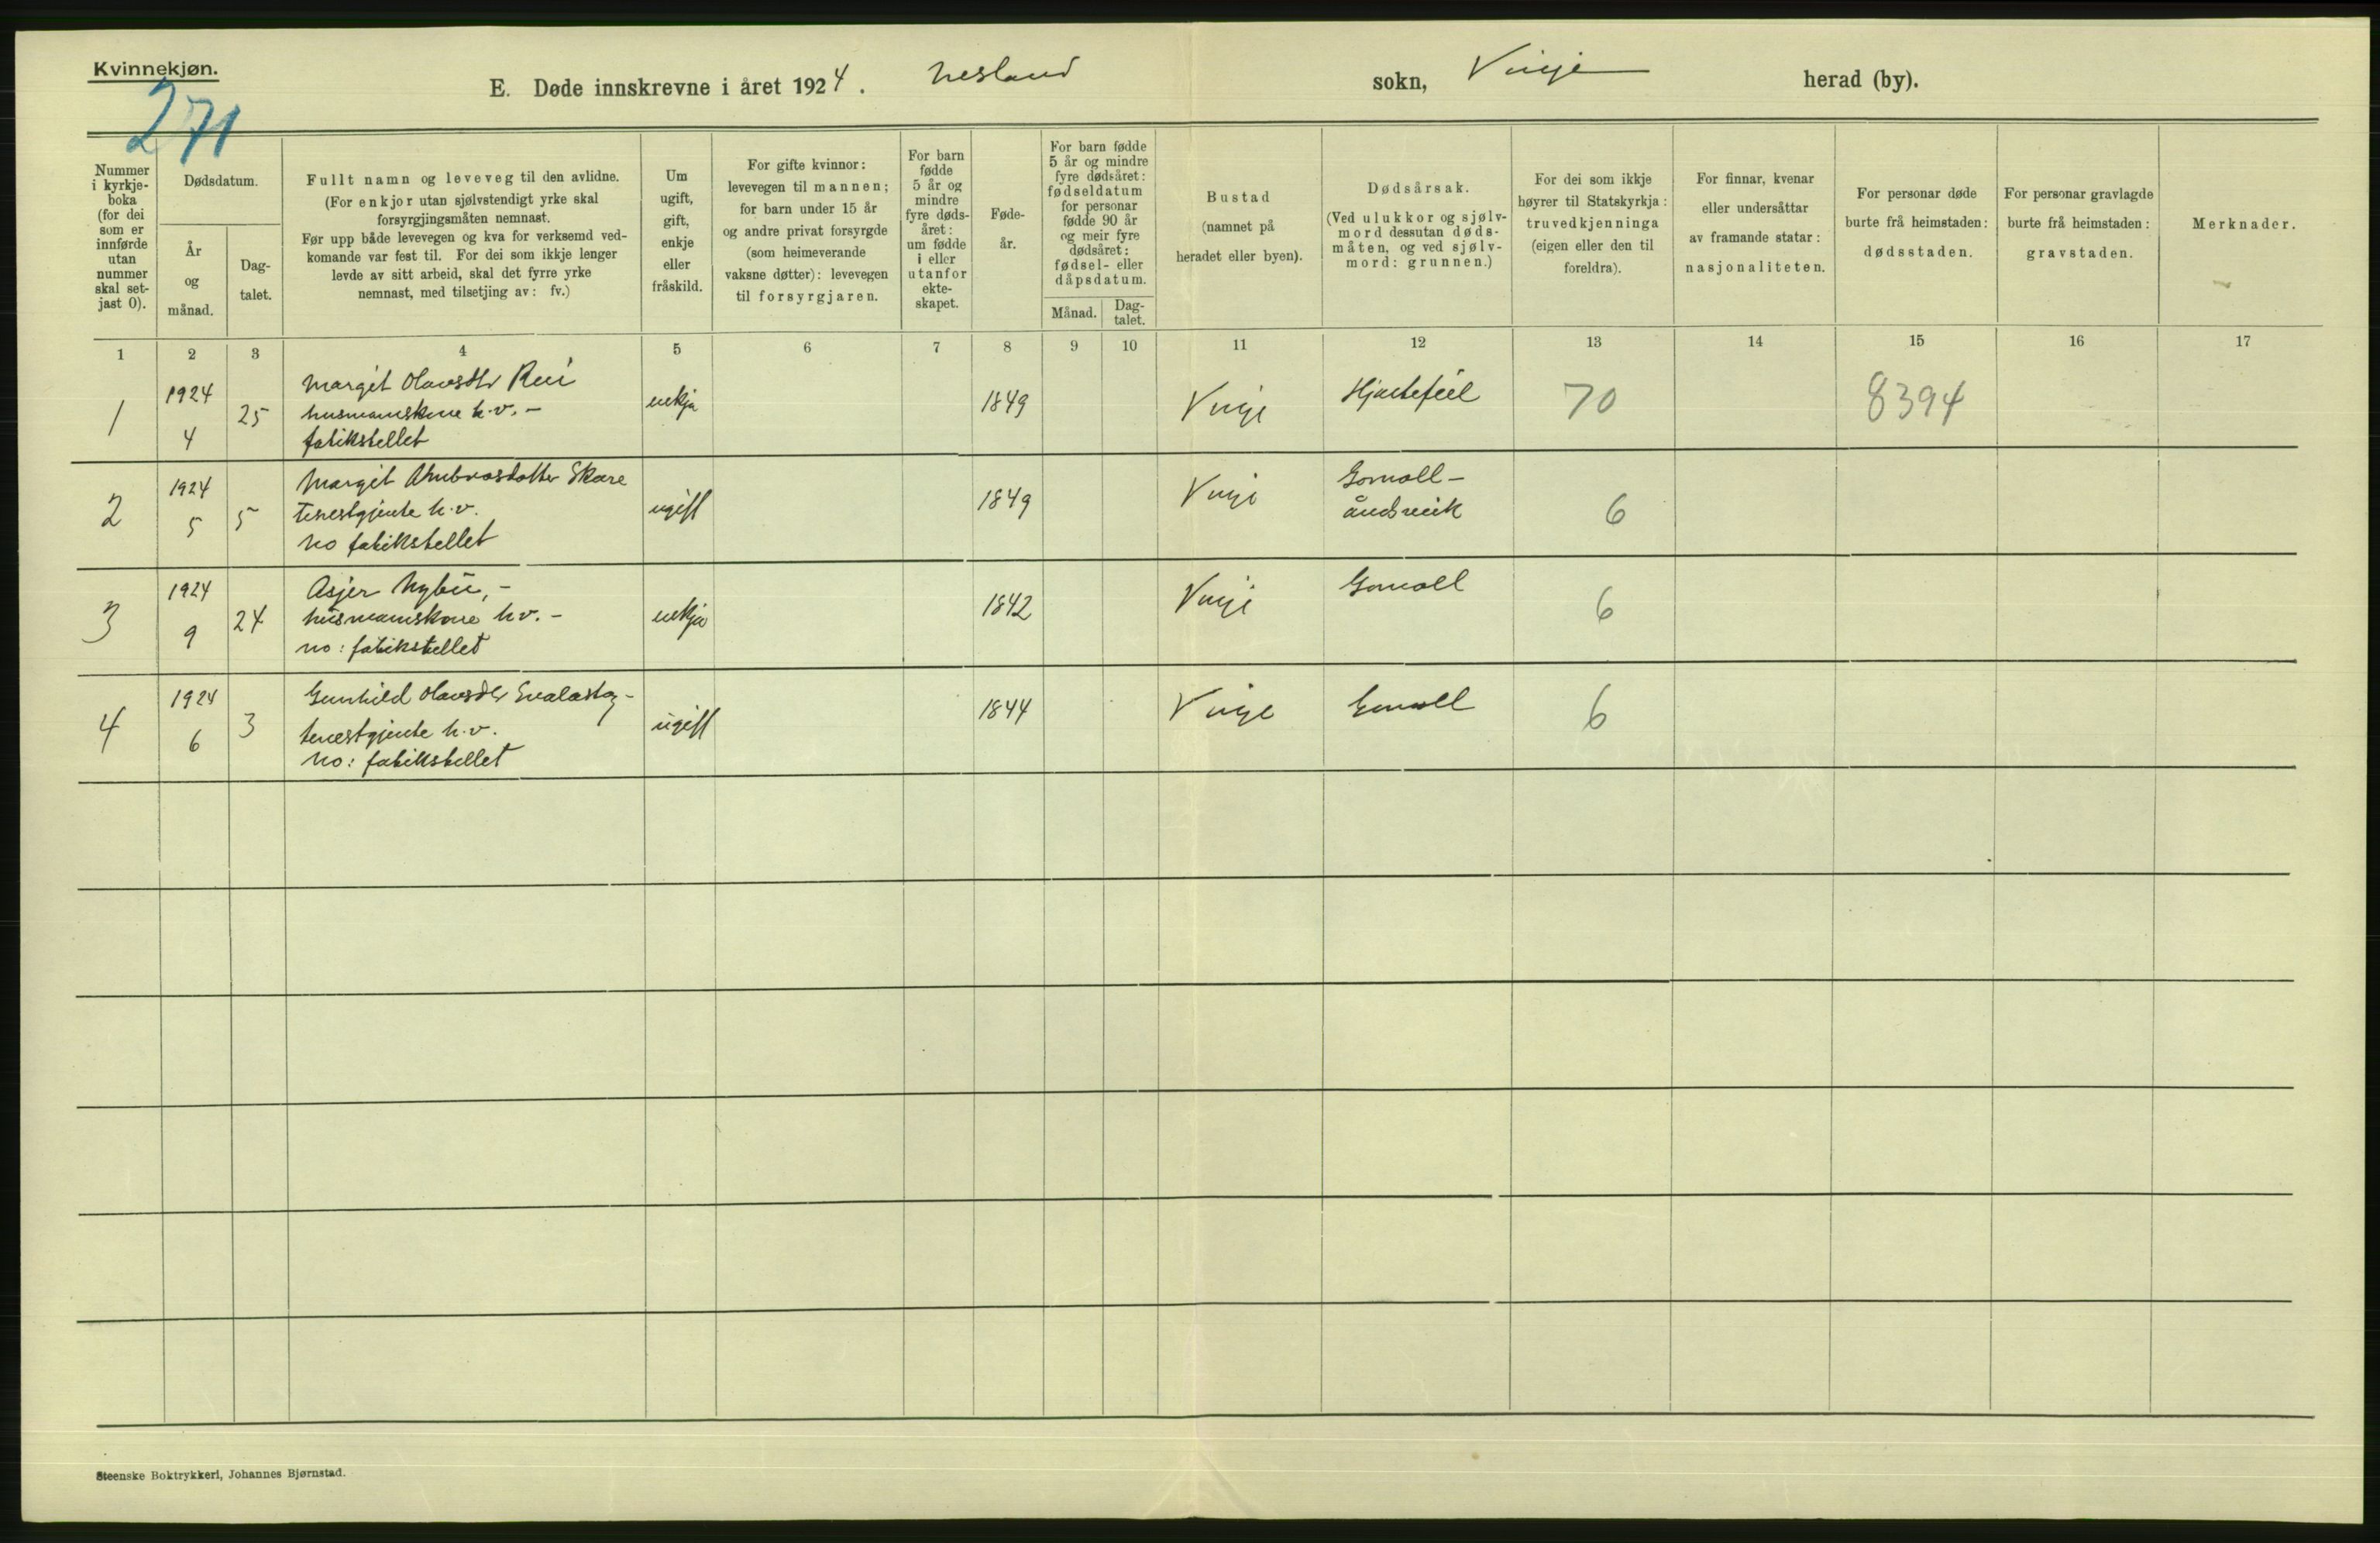 Kvinnekjøn.
271
E. Døde innskrevne i året 1924. Nesland sokn, Vinje herad (by).
Nummer i kyrkje-boka (for dei som er innførde utan nummer skal set-jast 0).
Dødsdatum.
År og månad.
Dag-talet.
Fullt namn og leveveg til den avlidne.
(For enkjor utan sjølvstendigt yrke skal
forsyrgjingsmåten nemnast.
Før upp både levevegen og kva for verksemd ved-
komande var fest til. For dei som ikkje lenger
levde av sitt arbeid, skal det fyrre yrke
nemnast, med tilsetjing av: fv.)
Um ugift, gift, enkje eller fråskild.
For gifte kvinnor:
levevegen til mannen;
for barn under 15 år
og andre privat forsyrgde
(som heimeverande
vaksne døtter): levevegen
til forsyrgjaren.
For barn fødde 5 år og mindre fyre døds-året: um fødde i eller utanfor ekte-skapet.
Føde-år.
For barn fødde 5 år og mindre fyre dødsåret: fødseldatum for personar fødde 90 år og meir fyre dødsåret: fødsel- eller dåpsdatum.
Månad.
Dag-talet.
Bustad
(namnet på
heradet eller byen).
Dødsårsak.
(Ved ulukkor og sjølv-
mord dessutan døds-
måten, og ved sjølv-
mord: grunnen.)
For dei som ikkje
høyrer til Statskyrkja:
truvedkjenninga
(eigen eller den til
foreldra).
For finnar, kvenar
eller undersåttar
av framande statar:
nasjonaliteten.
For personar døde
burte frå heimstaden:
dødsstaden.
For personar gravlagde
burte frå heimstaden:
gravstaden.
Merknader.
1 2 3 4 5 6 7 8 9 10 11 12 13 14 15 16 17
1 1924 4 25 Margit Olavsdtr Rui
husmannskone h.v. -
fatikstellet
enkja 1849 Vinje Hjartefeil 70 8394
2 1924 5 5 Margit Ambrosdotter Skare
tenestgjente h.v.
no fatikstellet
ugift 1849 Vinje Gomall -
åndsveik 6
3 1924 9 24 Asjer Nybu, -
husmannskone h.v. -
no: fatikstellet
enkja 1842 Vinje Gomall 6
4 1924 6 3 Gunhild Olavsdtr
tenestgjente h.v.
no: fatikstellet
ugift 1844 Vinje Gomall 6
Steenske Boktrykkeri, Johannes Bjørnstad.